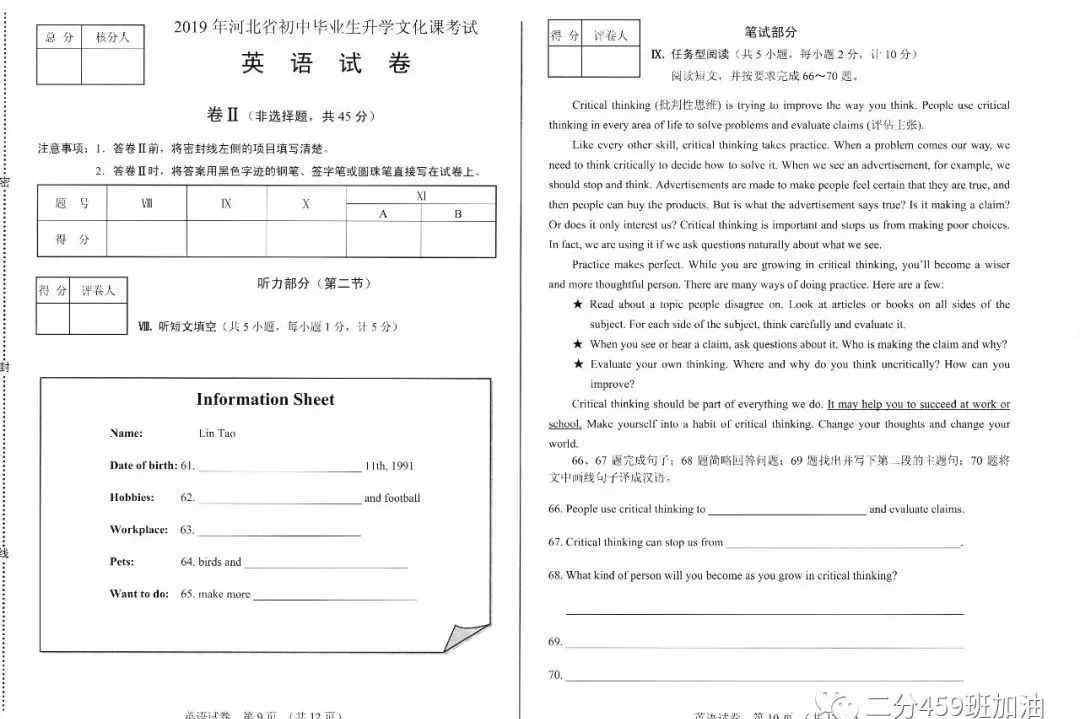 总 分 核分人
2019 年河北省初中毕业生升学文化课考试
英 语 试 卷
卷Ⅱ（非选择题，共 45 分）
注意事项：1．答卷Ⅱ前，将密封线左侧的项目填写清楚。
2．答卷Ⅱ时，将答案用黑色字迹的钢笔、签字笔或圆珠笔直接写在试卷上。
题 号 Ⅷ Ⅸ Ⅹ Ⅺ
A B
得 分
得 分 评卷人
听力部分（第二节）
Ⅷ. 听短文填空（共 5 小题，每小题 1 分，计 5 分）
Information Sheet
Name: Lin Tao
Date of birth: 61. 11th, 1991
Hobbies: 62. and football
Workplace: 63.
Pets: 64. birds and
Want to do: 65. make more
英语试卷 第 9 页 （共 12 页）
密
封
线
得 分 评卷人
笔试部分
Ⅸ. 任务型阅读（共 5 小题，每小题 2 分，计 10 分）
阅读短文，并按要求完成 66～70 题。
Critical thinking (批判性思维) is trying to improve the way you think. People use critical
thinking in every area of life to solve problems and evaluate claims (评估主张).
Like every other skill, critical thinking takes practice. When a problem comes our way, we
need to think critically to decide how to solve it. When we see an advertisement, for example, we
should stop and think. Advertisements are made to make people feel certain that they are true, and
then people can buy the products. But is what the advertisement says true? Is it making a claim?
Or does it only interest us? Critical thinking is important and stops us from making poor choices.
In fact, we are using it if we ask questions naturally about what we see.
Practice makes perfect. While you are growing in critical thinking, you'll become a wiser
and more thoughtful person. There are many ways of doing practice. Here are a few:
★ Read about a topic people disagree on. Look at articles or books on all sides of the
subject. For each side of the subject, think carefully and evaluate it.
★ When you see or hear a claim, ask questions about it. Who is making the claim and why?
★ Evaluate your own thinking. Where and why do you think uncritically? How can you
improve?
Critical thinking should be part of everything we do. It may help you to succeed at work or
school. Make yourself into a habit of critical thinking. Change your thoughts and change your
world.
66、67 题完成句子；68 题简略回答问题；69 题找出并写下第二段的主题句；70 题将
文中画线句子译成汉语。
66. People use critical thinking to and evaluate claims.
67. Critical thinking can stop us from .
68. What kind of person will you become as you grow in critical thinking?
69.
70.
英语试卷 第 10 页 （共
二分459班加油